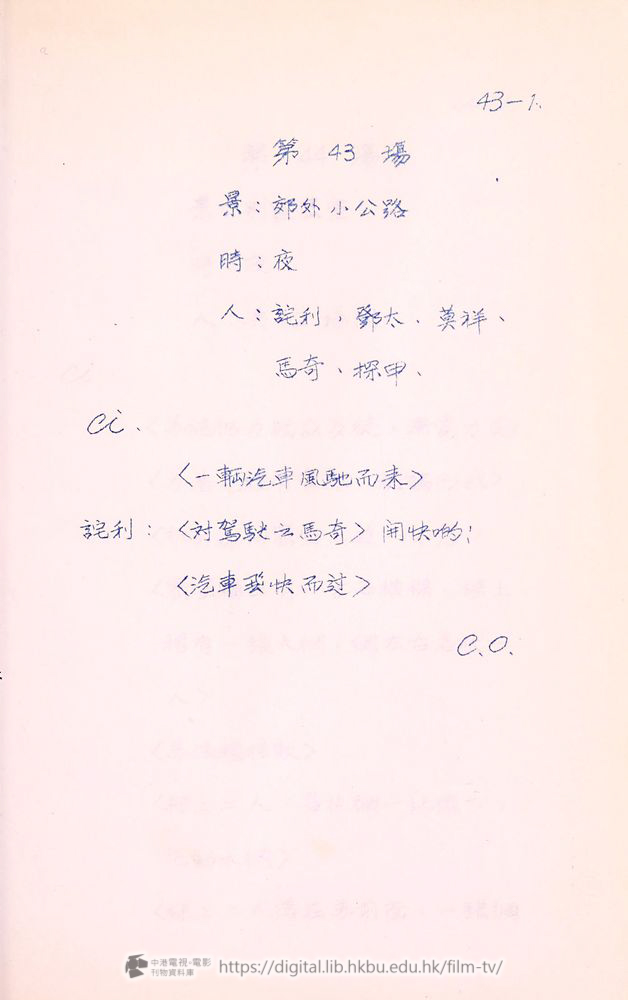 43-1.
第 43 場
景：郊外小公路
時：夜
人：詫利，鄧太、莫祥、
馬奇、探甲、
Ci.
〈一輛汽車風馳而来〉
詫利：〈対駕駛之馬奇〉開快啲！
〈汽車飛快而过〉
C.O.
中港電視·電影
刊物資料庫
https://digital.lib.hkbu.edu.hk/film-tv/